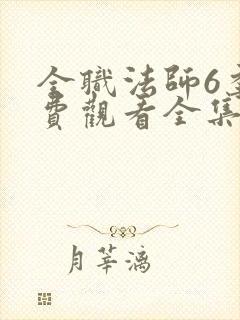 全職法師6季
費觀看全集
月華漓